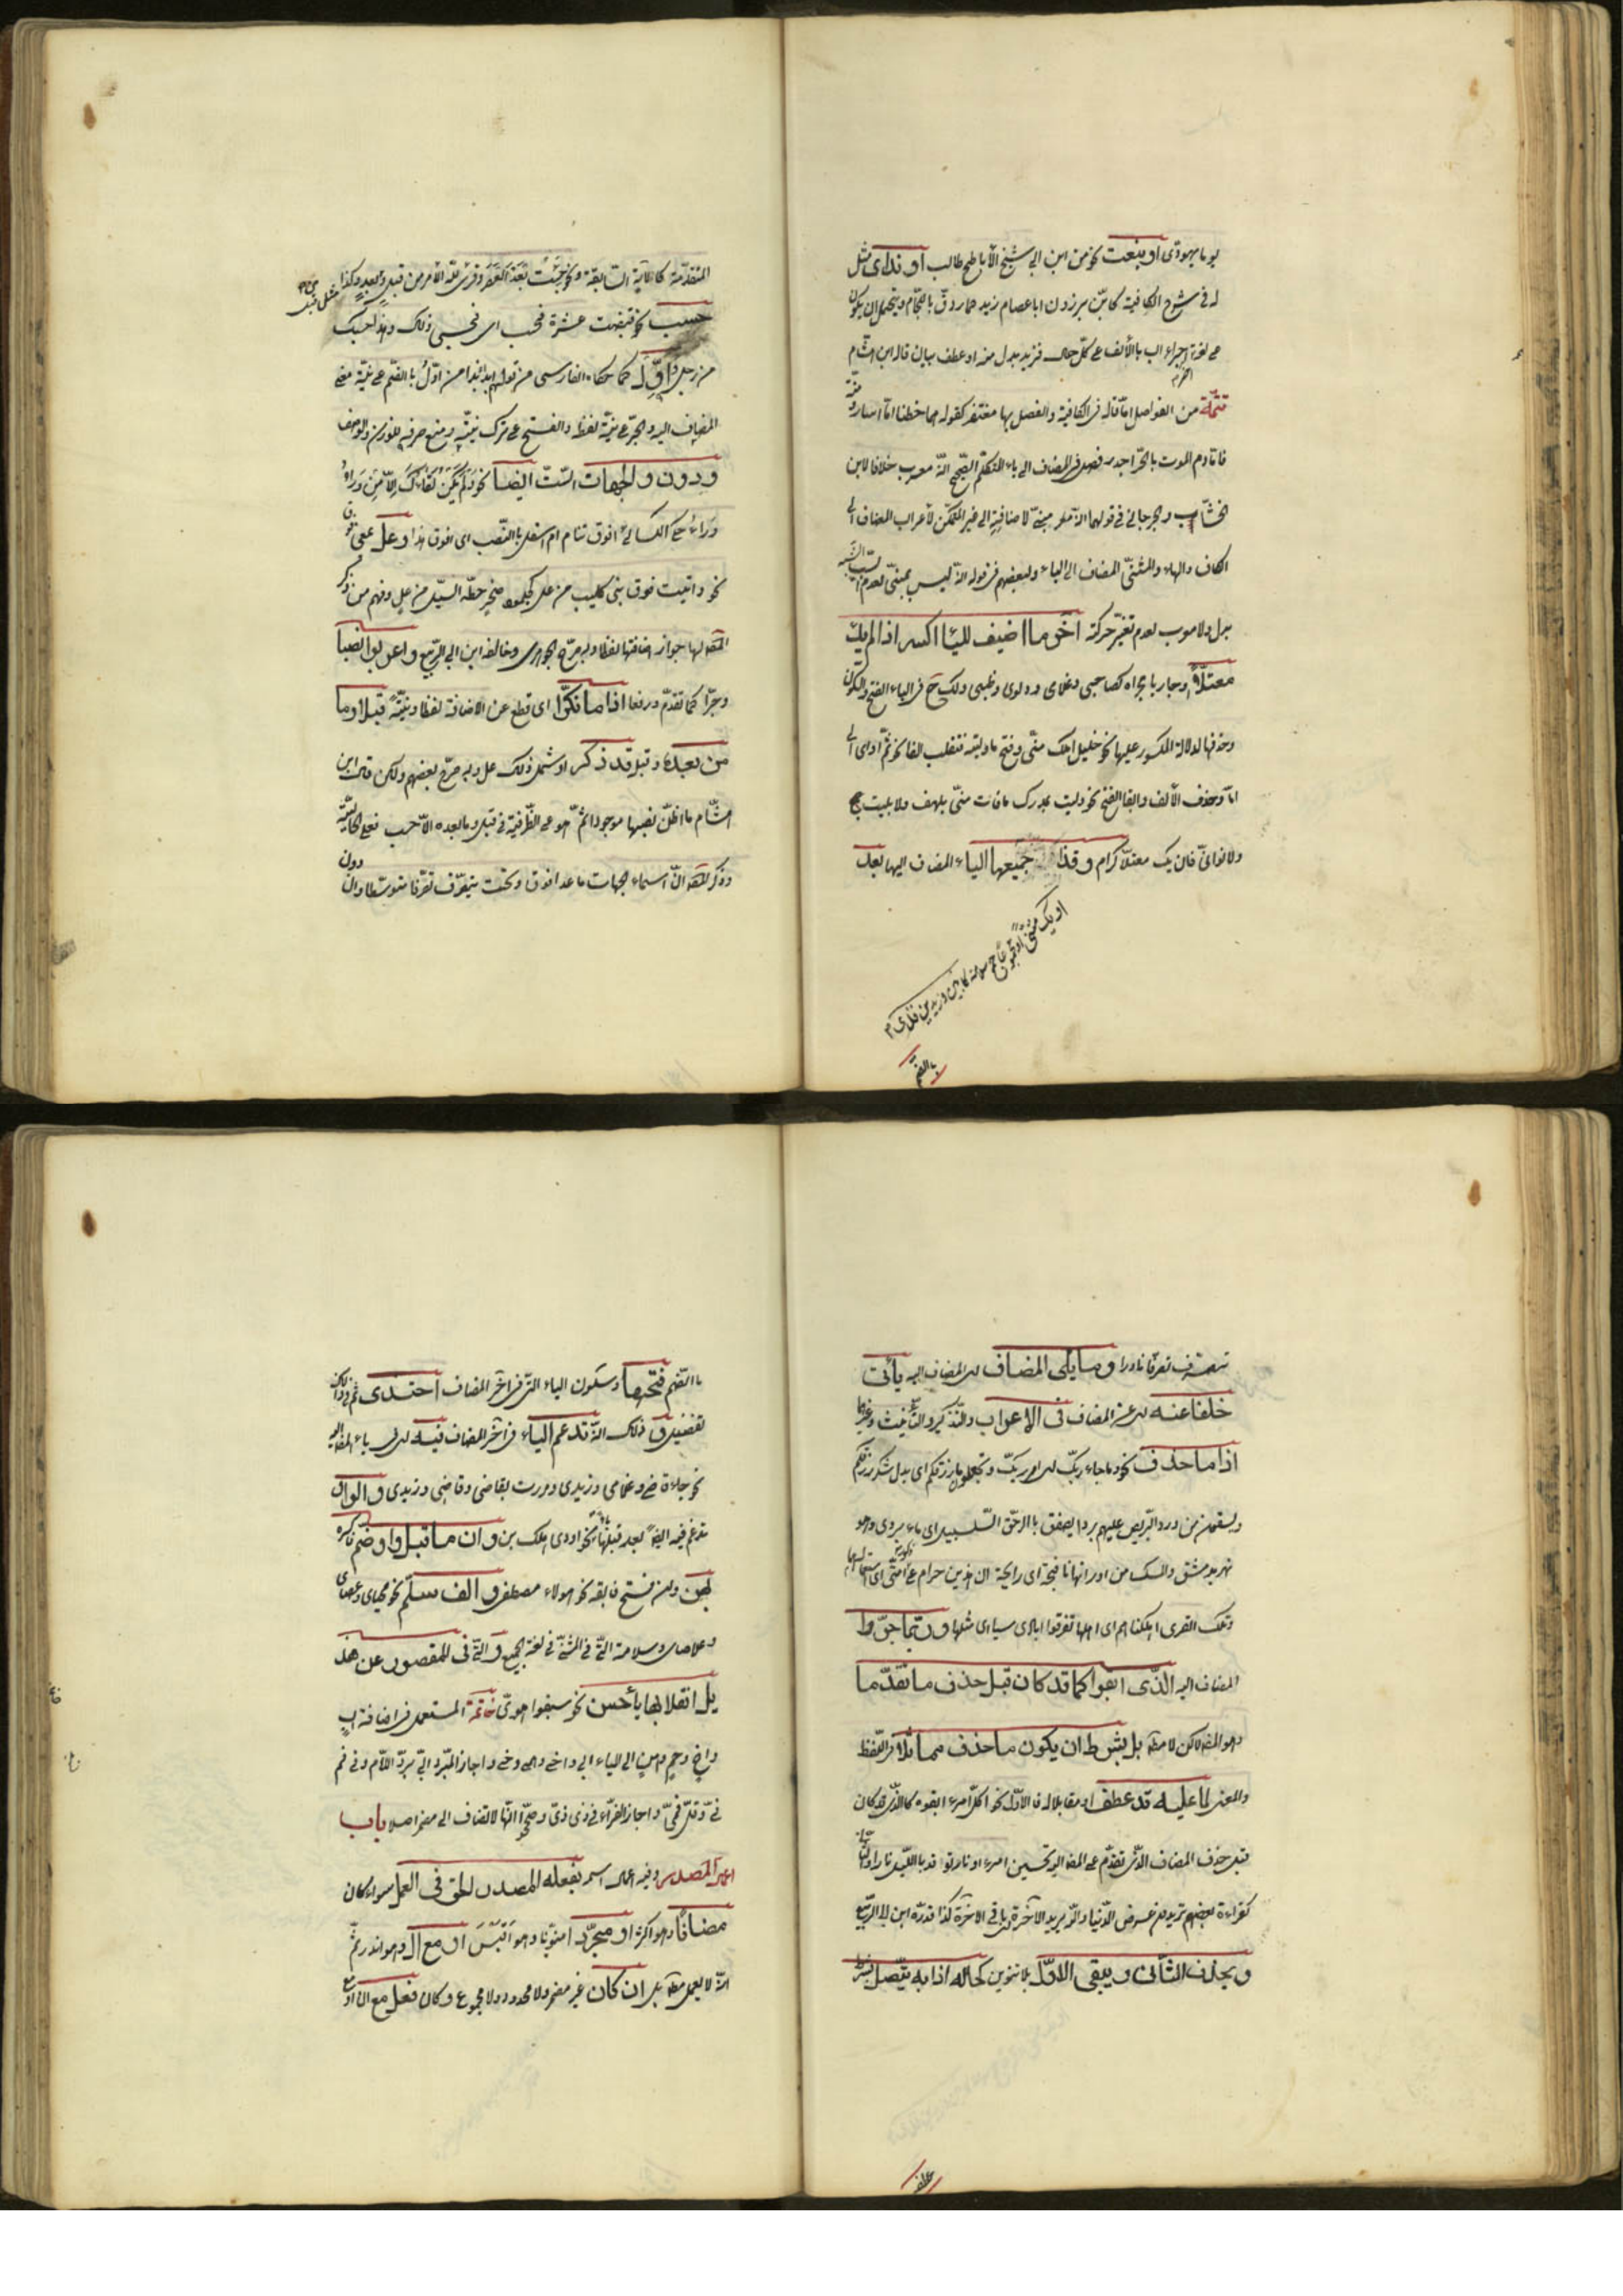 يوما يهودي او بنعت نحو من ابن ابي شيخ الأباطح طالب او ندا ي مثل
له في شرح الكافية كأنّ برذون ابا عصام زيد حمار دقّ باللجام ويحتمل ان يكون
على لغة اجراء اب بالألف على كلّ حال فزيد بدل منه او عطف بيان قاله ابن هشام
تتمّة من الفواصل امّا قاله في الكافية والفصل بها مغتفر كقوله هما خطتا امّا اسار ومنّة
فامّا دم والموت بالحرّ اجدر فصل في المضاف الى ياء المتكلّم الصّحيح انّه معرب خلافا لابن
الخشّاب والجرجاني في قولهما انّه مبنيّ لاضافته الى غير المتمكّن لأعراب المضاف الى
الكاف والهاء والمثنّى المضاف الى الياء ولبعضهم في قوله انّه ليس بمبنيّ لعدم السّبب
بل ولا معرب لعدم تغيّر حركته آخر ما اضيف لليا اكسر اذا لم يك
معتلّا او جار يا مجراه كصاحبي وغلامي ودلوي وظبيي ولك ح في الياء الفتح والسّكون
وحذفها لدلالة الكسر عليها نحو خليل املك منّي وفتح ما وليته فتقلب الفا نحو ثمّ اوى الى
امّا وحذف الألف وابقاء الفتح نحو وليت بمدرك ما فات منّي بلهف ولا بليت
ولا لو انّي فان يك معتلّا كرام وقذا جميعها الياء المضاف اليها بعد
او يك مثنّى او مجموعا جمع سلامة كابنين وزيدين فذي
بالفتح
المتقدّمة كالآية السّابقة ونحو جئت بعد العصر وقرئ لله الأمر من قبل ومن بعد وكذا
حسب نحو قبضت عشرة فحسب اي فحسبي ذلك وهذا حسبك
من رجل واوّل كما حكاه الفارسي من قولهم ابدأ بذا من اوّل بالضّم على نيّة معنى
المضاف اليه والجرّ على نيّة لفظه والفتح على ترك نيّته ومنع صرفه للوزن والوصف
ودون والجهات السّت ايضا نحو ولم يكن لقاؤك الّا من وراء
وراء حكى الكسائي افوق تنام ام اسفل بالنّصب اي افوق هذا وعل بمعنى فوق
نحو واتيت فوق بني كليب من عل كجلمود صخر حطّه السّيل من عل وفهم من ذكر
المصّ لها جواز اضافتها لفظا وبه صرّح الجوهري وخالفه ابن ابي الرّبيع واعربوا نصبا
وجرّا كما تقدّم ورفعا اذا ما نكّرا اي قطع عن الاضافة لفظا ونيّة قبلا وما
من بعده وقبل قد ذكرا وشمل ذلك عل وبه صرّح بعضهم ولكن قال ابن
هشام ما اظنّ نصبها موجودا ثمّ هو على الظّرفيّة في قبل وما بعده الّا حسب فعلى الحاليّة
وذكر المصّ انّ اسماء الجهات ما عدا فوق وتحت يتصرّف تصرّفا متوسّطا وان دون
يتصرّف تصرّفا نادرا وما يلي المضاف اي المضاف اليه يأتي
خلفا عنه اي عن المضاف في الاعراب والتّذكير والتّأنيث وغيرها
اذا ما حذف نحو وجاء ربّك اي امر ربّك وتجعلون رزقكم اي بدل شكر رزقكم
ويسقون من ورد البريص عليهم بردا يصفق بالرّحيق السّلسبيل اي ماء بردى وهو
نهر بدمشق والمسك من اردانها نافحة اي رائحة ان هذين حرام على ذكور امّتي اي استعمالهما
وتلك القرى اهلكناهم اي اهلها تفرّقوا ايادي سبا اي مثلها وربّما جرّوا
المضاف اليه الّذي ابقوا كما قد كان قبل حذف ما تقدّما
وهو المضاف لكن لا مطلقا بل بشرط ان يكون ما حذف مماثلا في اللّفظ
والمعنى لما عليه قد عطف او مقابلا له فالأوّل نحو اكلّ امرء ابقوه كالّذي قد كان
قبل حذف المضاف الّذي تقدّم على المضاف اليه تحسبين امرء او نار توقد باللّيل نارا والثّاني
كقراءة بعضهم تريدون عرض الدّنيا والله يريد الآخرة اي باقي الآخرة كذا قدّره ابن ابي الرّبيع
ويحذف الثّاني ويبقى الاوّل بلا تنوين كحاله اذا به يتّصل بشرط
عطف
بالضّم فتحها وسكون الياء الّتي في آخر المضاف احتذي ثمّ في ذلك
تفصيل وذلك انّه تدغم الياء في آخر المضاف فيه اي في ياء المضاف اليه
نحو جاء قاضيّ وغلاميّ وزيديّ ومررت بقاضيّ وغلاميّ وزيديّ والواو
تدغم فيه ايضا بعد قبلها ياء نحو اودى بنيّ وان ما قبل واو ضمّ فاكسره
يهن ولن فتح فابقه نحو هؤلاء مصطفيّ والف سلّم نحو محياي وعصاي
وغلاماي وسلامة الّتي في المثنّى في لغة الجميع والّتي في المقصور عن هذ
يل انقلابها ياء حسن نحو سبقوا هويّ خاتمة المستعمل في اضافة اب
واخ وحم وهن الى الياء ابي واخي وحمي وهني واجاز المبرّد ابيّ بردّ اللّام وفي فم
فيّ وقلّ فمي واجاز الفرّاء في ذي ذيّ وصحّحوا انّها لا تضاف الى مضمر اصلا باب
اعمال المصدر وفيه اعمال اسمه بفعله المصدر الحق في العمل سواء كان
مضافا وهو اكثر او مجرّدا منوّنا وهو اقيس او مع ال وهو اندر ثمّ
انّه لا يعمل مطلقا بل ان كان غير مضمر ولا محدود ولا مجموع وكان فعل مع ان او مع